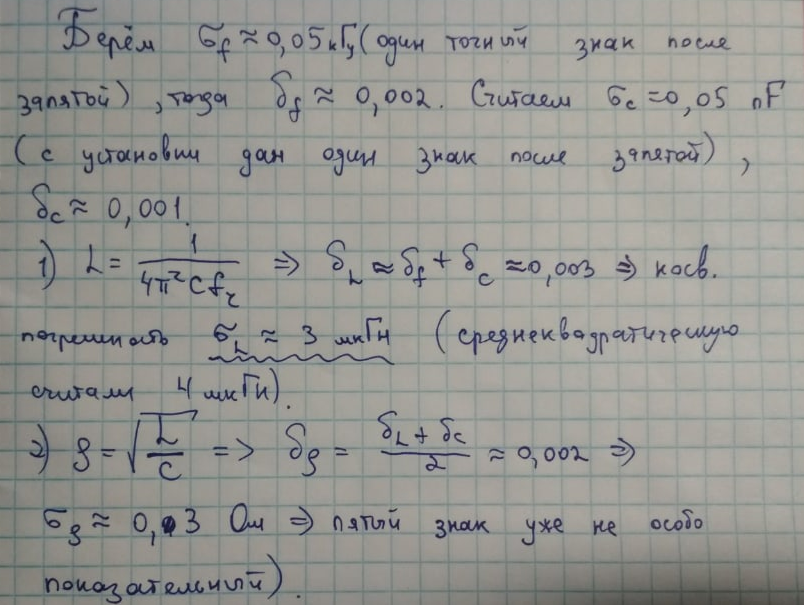 Берём σ_f ≈ 0,05 кГц (один точный знак после
запятой), тогда δ_f ≈ 0,002. Считаем σ_c = 0,05 пF
(с установки дан один знак после запятой),
δ_c ≈ 0,001.
1) L = 1/(4π²Cf_r) => δ_L ≈ δ_f + δ_c ≈ 0,003 => косв.
погрешность σ_L ≈ 3 мкГн (среднеквадратическую
считали 4 мкГн).
2) ρ = √(L/C) => δ_ρ = (δ_L + δ_c)/2 ≈ 0,002 =>
σ_ρ ≈ 0,3 Ом => пятый знак уже не особо
показательный).